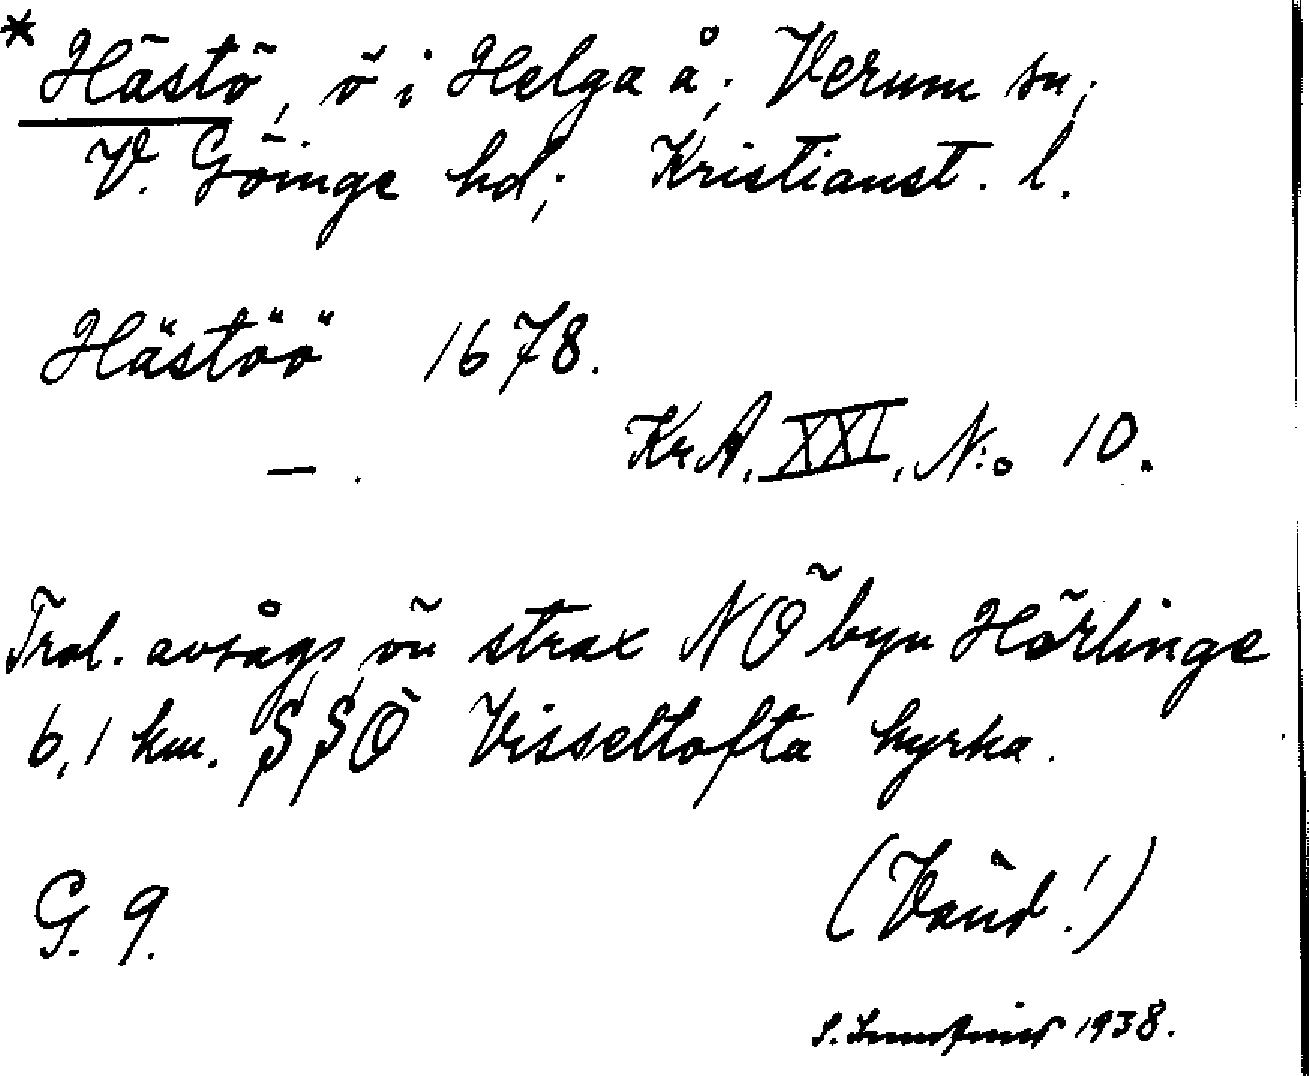 * Hästö, ö i Helga å; Verum sn;
V. Göinge hd; Kristianst. l.
Hästöö 1678.
— . Kr.A. XXI, N:o 10.
Trol. avsågs ön strax NÖ byn Hörlinge
6,1 km. SSÖ Visseltofta kyrka.
G. 9. (Vänd!)
1938.